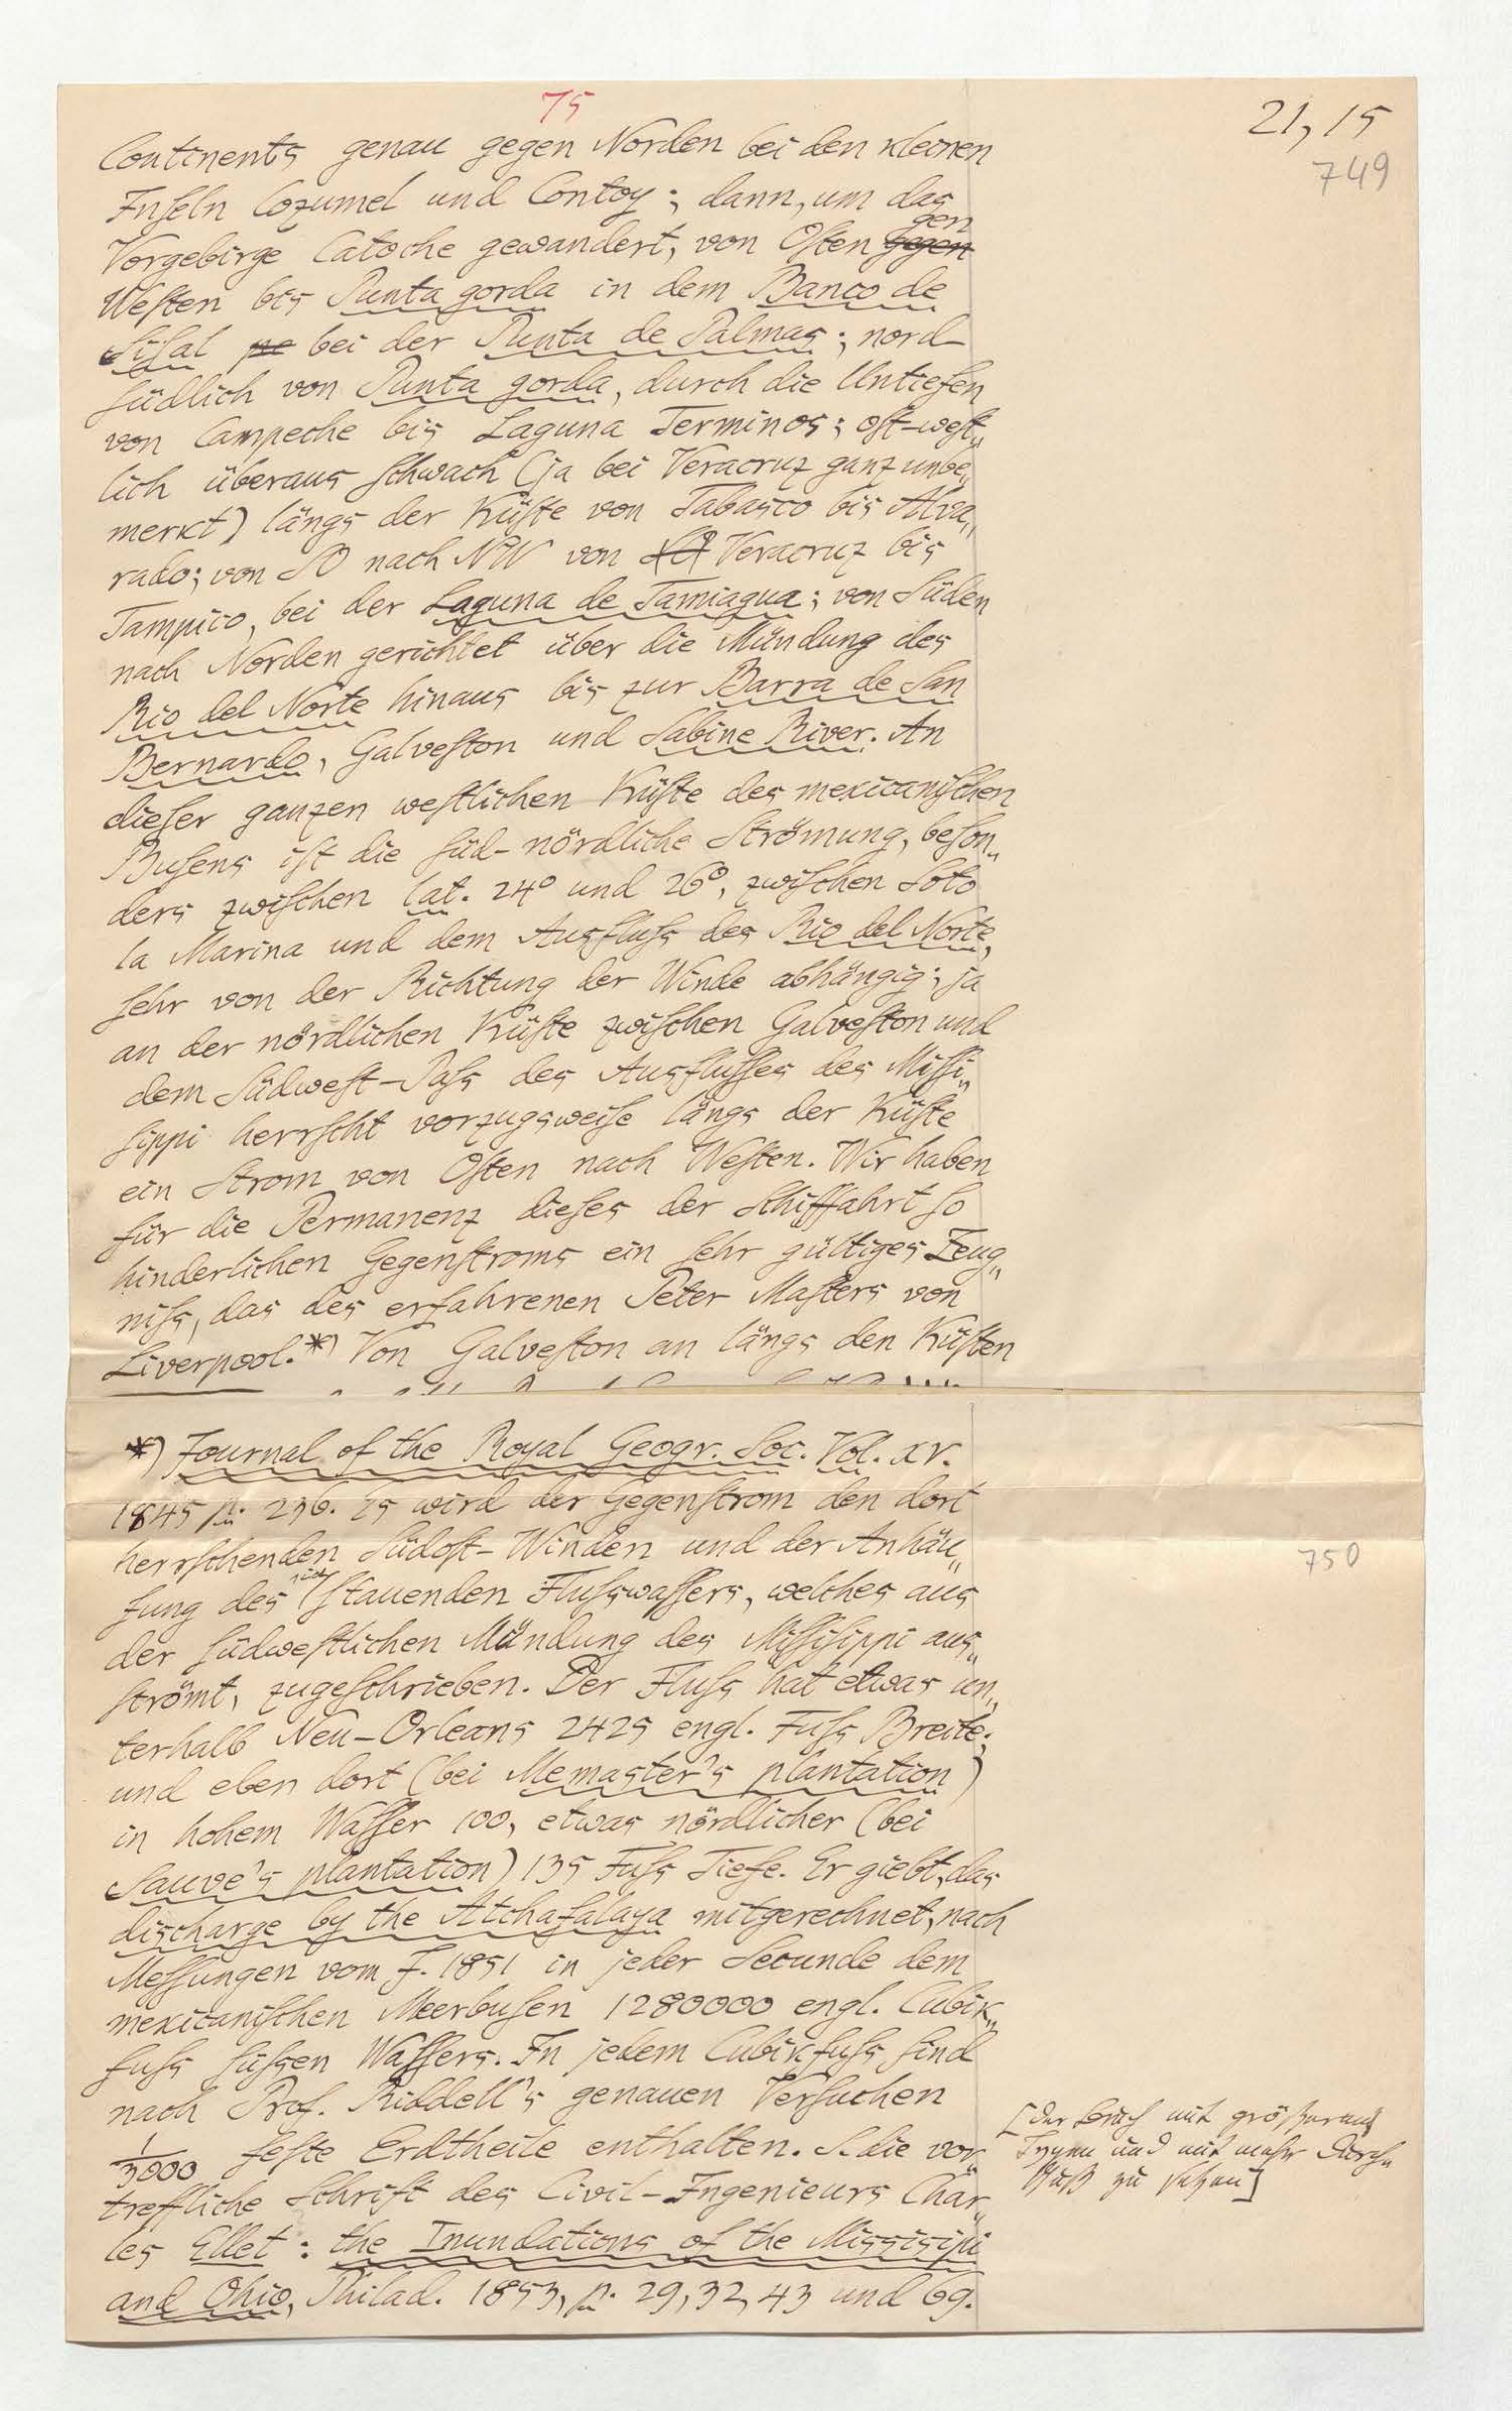 75
21, 15
749
Continents genau gegen Norden bei den kleinen
Inseln Cozumel und Contoy; dann, um das
Vorgebirge Catoche gewandert, von Osten gegen gen
Westen bis Punta gorda in dem Banco de
Sisal pe bei der Punta de Palmas; nord-
südlich von Punta gorda, durch die Untiefen
von Campeche bis Laguna Terminos; ost-west„
lich überaus schwach (ja bei Veracruz ganz unbe„
merkt) längs der Küste von Tabasco bis Alva„
rado; von SO nach NW von SO Veracruz bis
Tampico, bei der Laguna de Tamiagua; von Süden
nach Norden gerichtet über die Mündung des
Rio del Norte hinaus bis zur Barra de San
Bernardo, Galveston und Sabine River. An
dieser ganzen westlichen Küste des mexicanischen
Busens ist die süd-nördliche Strömung, beson„
ders zwischen lat. 24° und 26°, zwischen Soto
la Marina und dem Ausfluss des Rio del Norte,
sehr von der Richtung der Winde abhängig; ja
an der nördlichen Küste zwischen Galveston und
dem Südwest-Pass des Ausflusses des Missi„
sippi herrscht vorzugsweise längs der Küste
ein Strom von Osten nach Westen. Wir haben
für die Permanenz dieses der Schiffahrt so
hinderlichen Gegenstroms ein sehr gültiges Zeug„
niss, das des erfahrenen Peter Masters von
Liverpool.*) Von Galveston an längs den Küsten
*) Journal of the Royal Geogr. Soc. Vol. XV.
1845 p. 236. Es wird der Gegenstrom den dort
herrschenden Südost-Winden und der Anhäu„
fung des sich stauenden Flusswassers, welches aus
der südwestlichen Mündung des Missisippi aus„
strömt, zugeschrieben. Der Fluss hat etwas un„
terhalb Neu-Orleans 2425 engl. Fuss Breite;
und eben dort (bei Memaster's plantation)
in hohem Wasser 100, etwas nördlicher (bei
Sauve's plantation) 135 Fuss Tiefe. Er giebt, das
discharge by the Atchafalaya mitgerechnet, nach
Messungen vom J. 1851 in jeder Secunde dem
mexicanischen Meerbusen 1280000 engl. Cubik„
fuss süssen Wassers. In jedem Cubikfuss sind
nach Prof. Riddell's genauen Versuchen
1/3000 feste Erdtheile enthalten. S. die vor„
treffliche Schrift des Civil-Ingenieurs Char„
les Ellet: the Inundations of the Missisipi
and Ohio, Philad. 1853, p. 29, 32, 43 und 69.
750
[der Bruch mit größeren
Typen und mit mehr Durch„
schuß zu setzen]